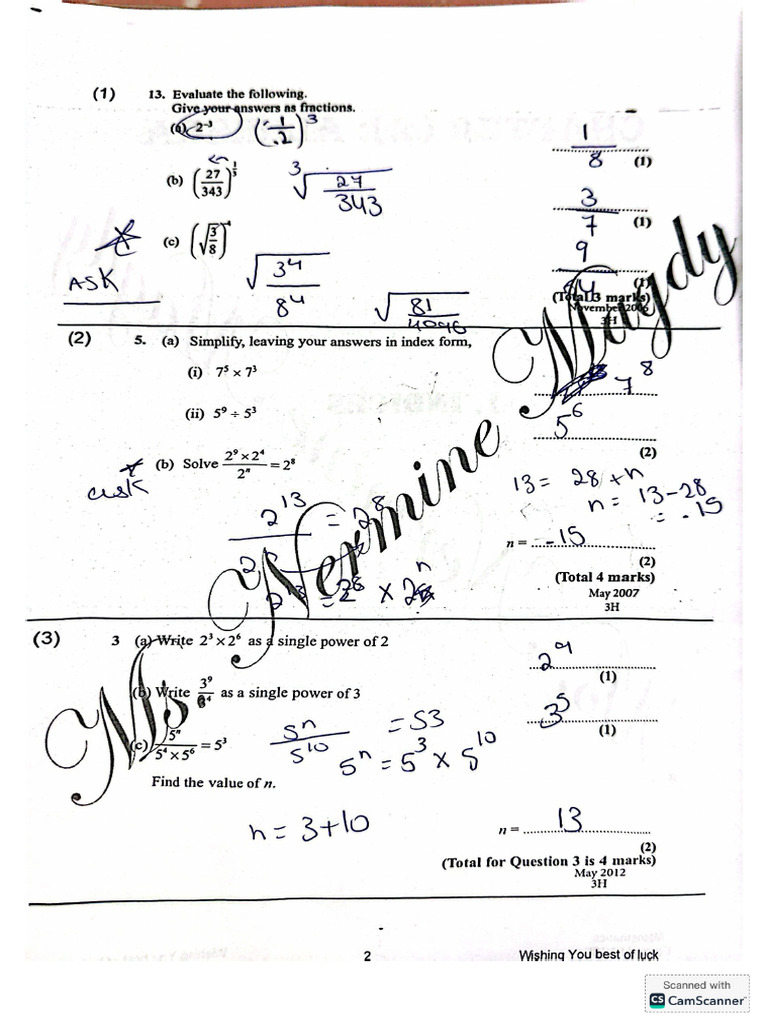 (1) 13. Evaluate the following.
Give your answers as fractions.
(a) 2⁻³ (1/.2)³ 1/8 (1)
(b) (27/343)^(1/3) ³√(27/343) 3/7 (1)
(c) (√(3/8))⁴ √(3⁴/8⁴) √(81/4096) 9/64 (1)
ASK
(Total 3 marks)
November 2006
3H
(2) 5. (a) Simplify, leaving your answers in index form,
(i) 7⁵ × 7³ 7⁸
(ii) 5⁹ ÷ 5³ 5⁶
(2)
ask (b) Solve (2⁹ × 2⁴)/2ⁿ = 2⁸
13 = 28 + n
n = 13 - 28
= - 15
2¹³ = 2⁸
n = -15
2¹³ = 2⁸ × 2ⁿ
(2)
(Total 4 marks)
May 2007
3H
(3) 3 (a) Write 2³ × 2⁶ as a single power of 2
2⁹ (1)
(b) Write 3⁹/3⁴ as a single power of 3
3⁵ (1)
(c) 5ⁿ/(5⁴ × 5⁶) = 5³ 5ⁿ/5¹⁰ = 53
5ⁿ = 5³ × 5¹⁰
Find the value of n.
n = 3+10
n = 13
(2)
(Total for Question 3 is 4 marks)
May 2012
3H
Ms Nermine Magdy
2 Wishing You best of luck
Scanned with
CS CamScanner